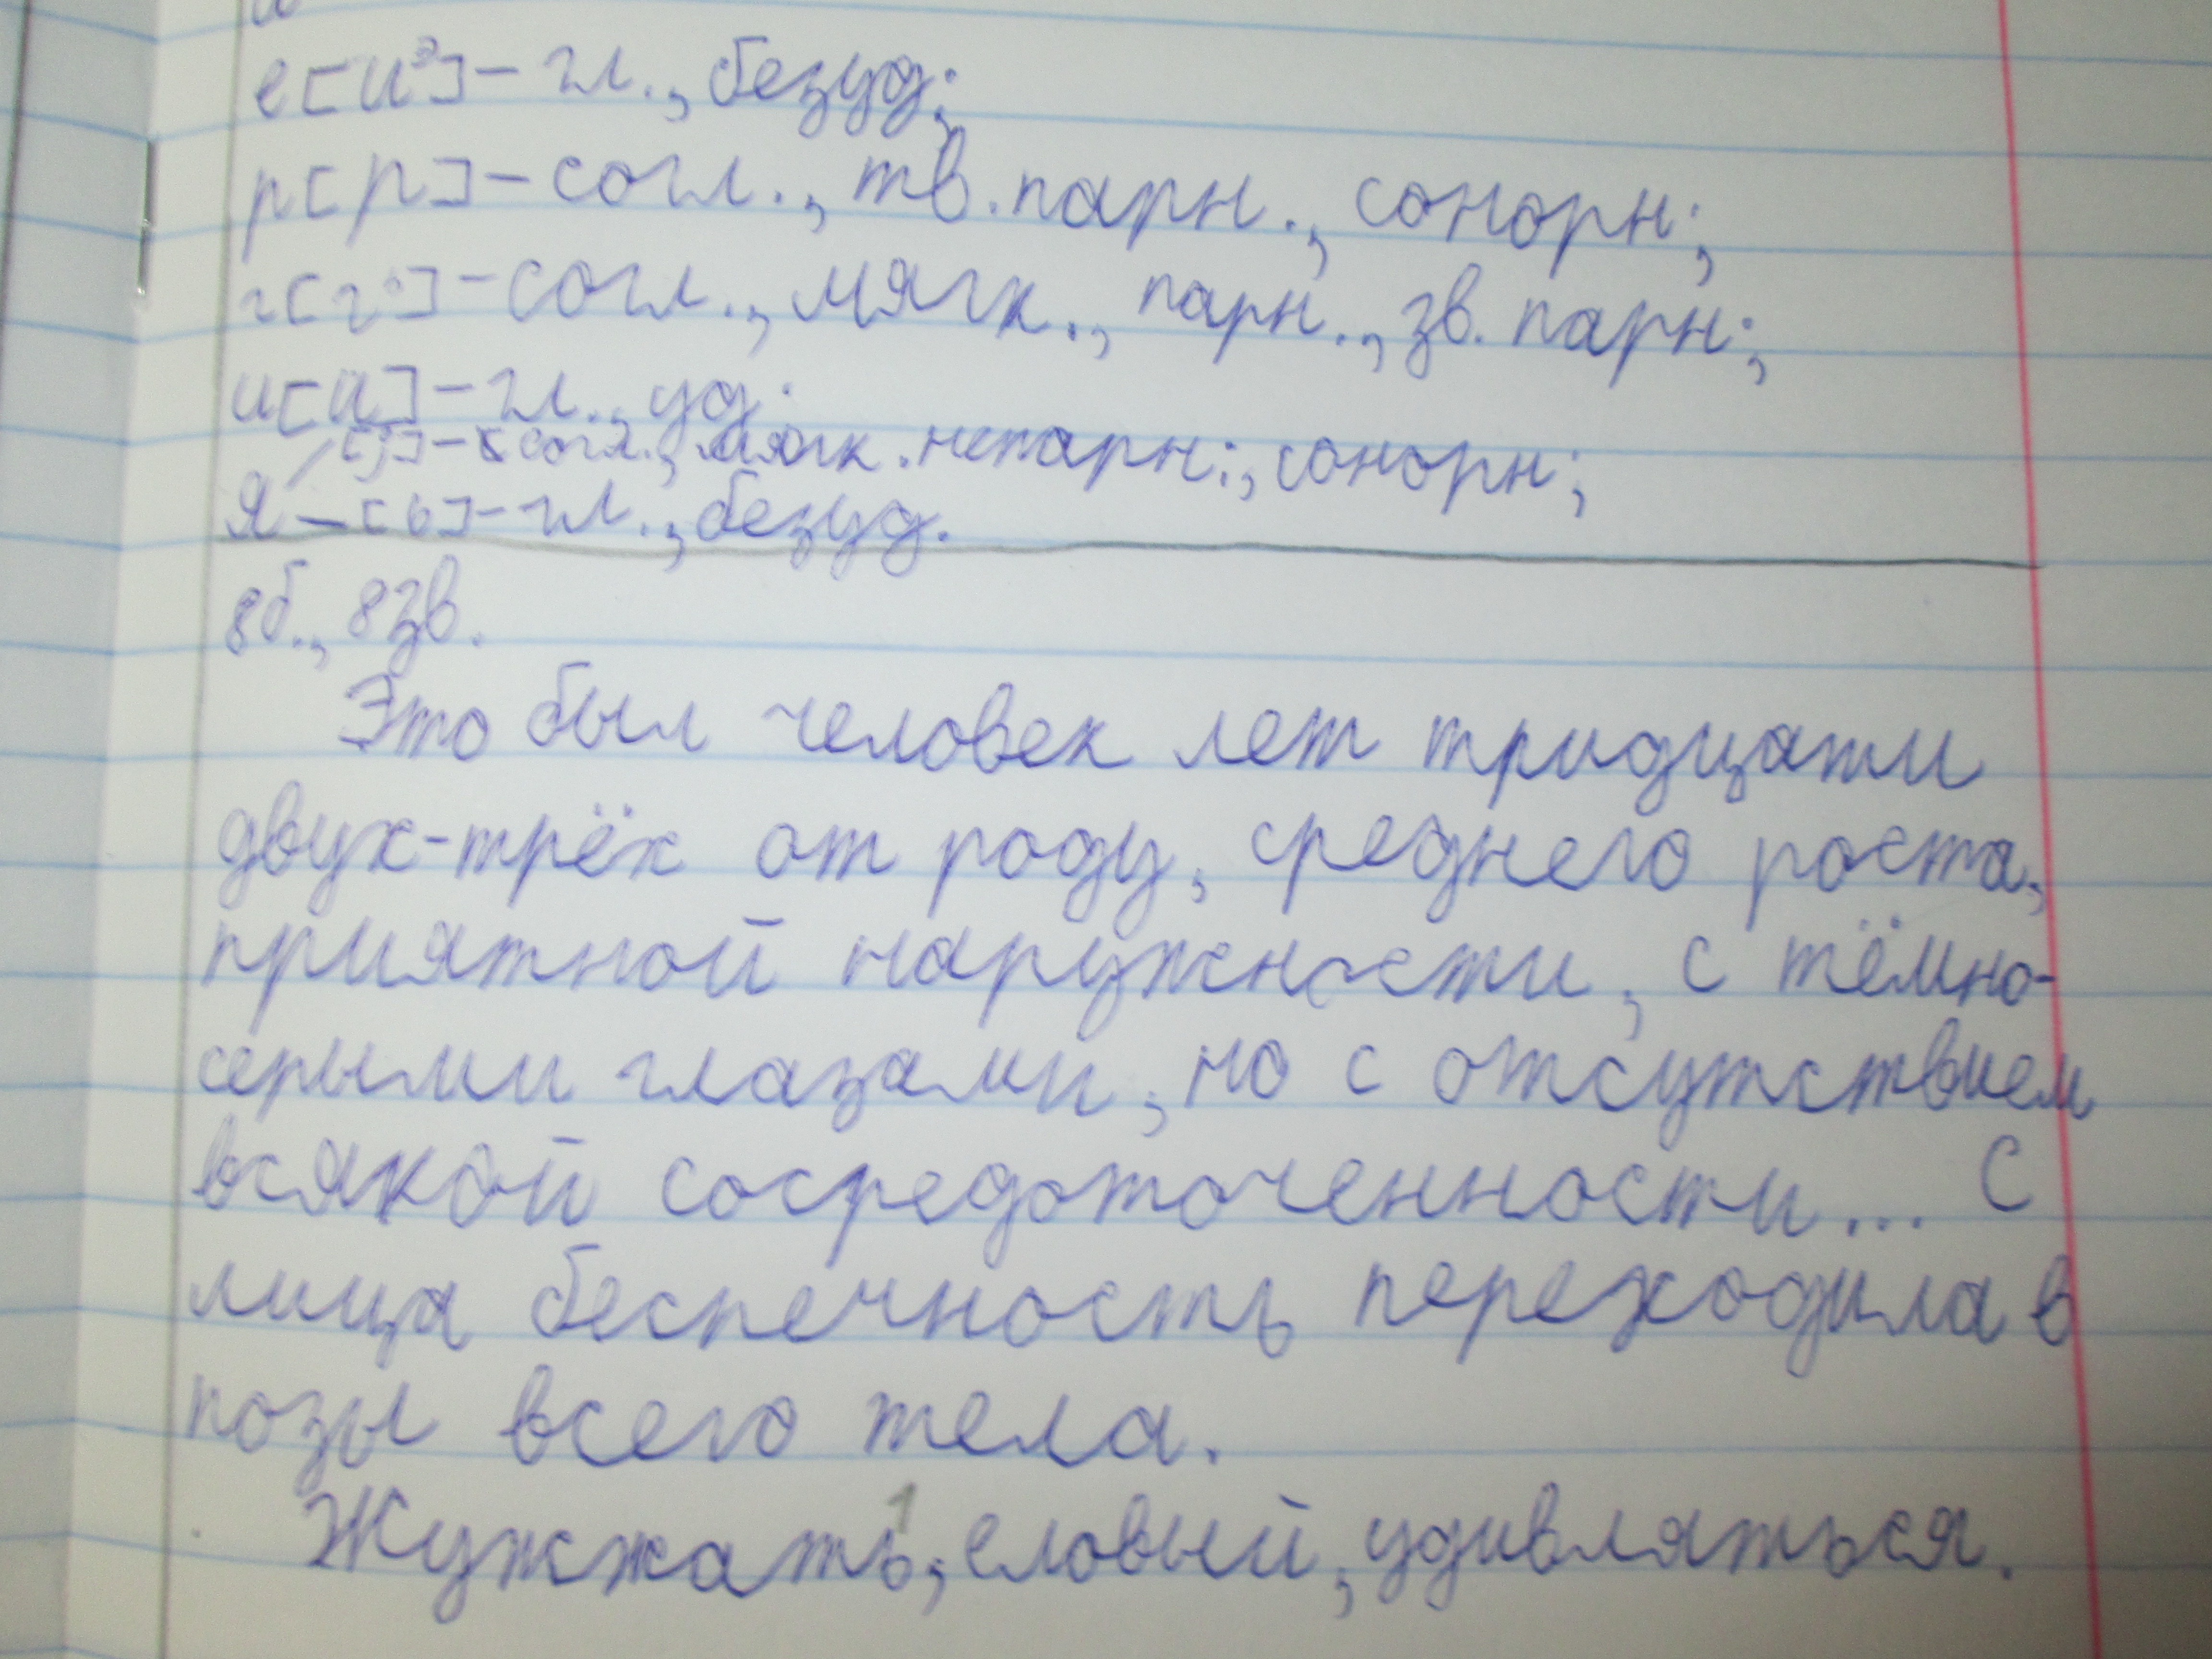 е[иэ]-гл., безуд;
р[р]-согл., тв.парн., сонорн;
г[г']-согл., мягк., парн., зв. парн;
и[и]-гл., уд.
[j]-согл., мягк.непарн., сонорн;
я-[ь]-гл., безуд.
8б., 8зв.
Это был человек лет тридцати
двух-трёх от роду, среднего роста,
приятной наружности, с тёмно-
серыми глазами, но с отсутствием
всякой сосредоточенности... С
лица беспечность переходила в
позы всего тела.
Жужжать1, еловый, удивляться.